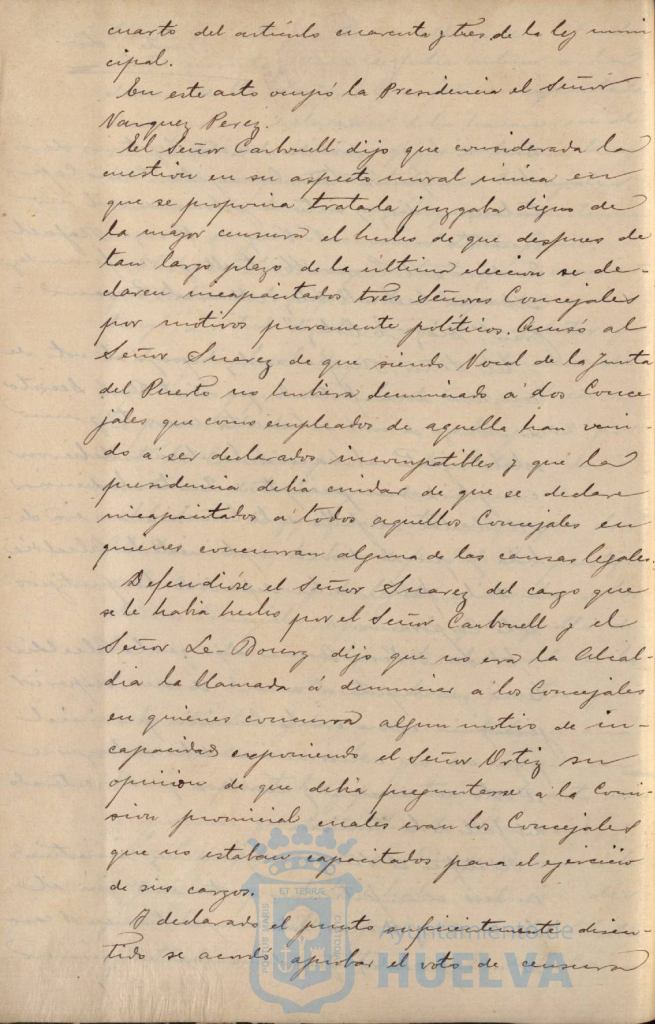 cuarto del artículo cuarenta y tres de la ley muni
cipal.
En este acto ocupó la Presidencia el Señor
Vazquez Perez.
El Señor Carbonell dijo que considerada la
cuestion en su aspecto moral única en
que se proponia tratarla juzgaba digno de
la mayor censura el hecho de que despues de
tan largo plazo de la última eleccion se de-
claren incapacitados tres Señores Concejales
por motivos puramente políticos. Acusó al
Señor Suarez de que siendo Vocal de la Junta
del Puerto no hubiera denunciado á dos Conce
jales que como empleados de aquella han veni-
do á ser declarados incompatibles y que la
presidencia debia cuidar de que se declare
incapacitados á todos aquellos Concejales en
quienes concurran alguna de las causas legales.
Defendióse el Señor Suarez del cargo que
se le habia hecho por el Señor Carbonell y el
Señor Le-Bourg dijo que no era la Alcal-
dia la llamada á denunciar á los Concejales
en quienes concurra algun motivo de in-
capacidad exponiendo el Señor Ortiz su
opinion de que debia preguntarse á la Comi-
sion provincial cuales eran los Concejales
que no estaban capacitados para el ejercicio
de sus cargos.
Y declarado el punto suficientemente discu-
tido se acordó aprobar el voto de censura
ET TERRAE
Ayuntamiento de
HUELVA